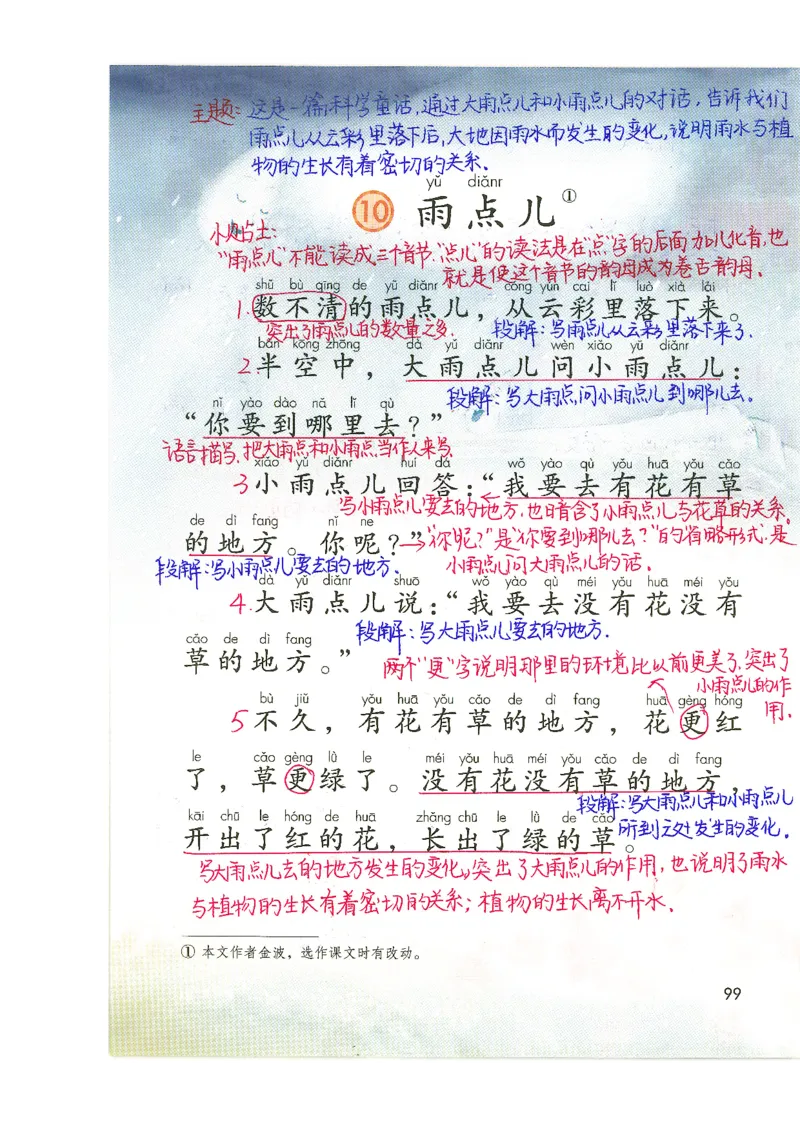 主题：这是一篇科学童话，通过大雨点儿和小雨点儿的对话，告诉我们
雨点儿从云彩里落下后，大地因雨水而发生的变化，说明雨水与植
物的生长有着密切的关系。
yǔ diǎnr
10 雨点儿①
小贴士：
“雨点儿”不能读成三个音节。“点儿”的读法是在“点”字的后面加儿化音，也
就是使这个音节的韵母成为卷舌韵母。
shǔ bù qīng de yǔ diǎnr cóng yún cai lǐ luò xià lái
1.数不清的雨点儿，从云彩里落下来。
突出了雨点儿的数量之多。 段解：写雨点儿从云彩里落下来了。
bàn kōng zhōng dà yǔ diǎnr wèn xiǎo yǔ diǎnr
2半空中，大雨点儿问小雨点儿：
段解：写大雨点问小雨点儿到哪儿去。
nǐ yào dào nǎ lǐ qù
“你要到哪里去？”
语言描写，把大雨点和小雨点当作人来写。
xiǎo yǔ diǎnr huí dá wǒ yào qù yǒu huā yǒu cǎo
3小雨点儿回答：“我要去有花有草
写小雨点儿要去的地方，也暗含了小雨点儿与花草的关系。
de dì fang nǐ ne
的地方。你呢？”→“你呢？”是“你要到哪儿去？”的省略形式，是
段解：写小雨点儿要去的地方。 小雨点儿问大雨点儿的话。
dà yǔ diǎnr shuō wǒ yào qù méi yǒu huā méi yǒu
4.大雨点儿说：“我要去没有花没有
cǎo de dì fang 段解：写大雨点儿要去的地方。
草的地方。” 两个“更”字说明那里的环境比以前更美了，突出了
小雨点儿的作
用。
bù jiǔ yǒu huā yǒu cǎo de dì fang huā gèng hóng
5不久，有花有草的地方，花更红
le cǎo gèng lǜ le méi yǒu huā méi yǒu cǎo de dì fang
了，草更绿了。没有花没有草的地方，
段解：写大雨点儿和小雨点儿
kāi chū le hóng de huā zhǎng chū le lǜ de cǎo
开出了红的花，长出了绿的草。
所到之处发生的变化。
写大雨点儿去的地方发生的变化，突出了大雨点儿的作用，也说明了雨水
与植物的生长有着密切的关系；植物的生长离不开水。
① 本文作者金波，选作课文时有改动。
99